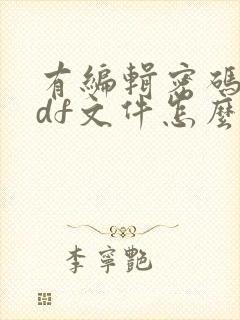 有編輯密碼
df文件怎麼
李寧艷